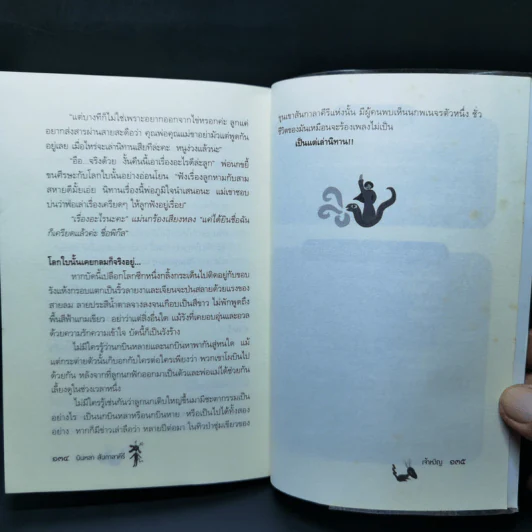 "แต่บางทีก็ไม่ใช่เพราะอยากออกจากไข่หรอกค่ะ ลูกแค่
อยากส่งสารผ่านสายสะดือว่า คุณพ่อคุณแม่ขาอย่ามัวแต่พูดกัน
อยู่เลย เมื่อไหร่จะเล่านิทานเสียทีล่ะคะ หนูง่วงแล้วนะ"
"อือ...จริงด้วย งั้นคืนนี้เอาเรื่องอะไรดีล่ะลูก" พ่อนกขยี้
ขนศีรษะกับโลกใบนั้นอย่างอ่อนโยน "ฟังเรื่องลูกหามกับสาม
สหายดีมั้ยเอ่ย นิทานเรื่องนี้พ่อภูมิใจนำเสนอนะ แม่เขาชอบ
บ่นว่าพ่อเล่าเรื่องเครียดๆ ให้ลูกฟังอยู่เรื่อย"
"เรื่องอะไรนะคะ" แม่นกร้องเสียงหลง "แค่ได้ยินชื่อฉัน
ก็เครียดแล้วค่ะ ชื่อพิกึ๊ล"
โลกใบนั้นเคยกลมก็จริงอยู่...
หากบัดนี้เปลือกโลกซีกหนึ่งกลิ้งกระเด็นไปติดอยู่กับขอบ
รังแห้งกรอบแตกเป็นริ้วลายงาและเจียนจะปนสลายด้วยแรงของ
สายลม ลายประสีน้ำตาลจางลงจนเกือบเป็นสีขาว ไม่พักพูดถึง
พื้นสีฟ้าแกมเขียว อย่าว่าแต่สิ่งอื่นใด แม้รังที่เคยอบอุ่นและอวล
ด้วยความรักความเข้าใจ บัดนี้ก็เป็นรังร้าง
ไม่มีใครรู้ว่านกบินหลายและนกบินหาพากันสู่หนใด แม้
แต่กระต่ายตัวนั้นก็บอกกับใครต่อใครเพียงว่า พวกเขาโผบินไป
ด้วยกัน หลังจากที่ลูกนกฟักออกมาเป็นตัวและพ่อแม่ได้ช่วยกัน
เลี้ยงดูในช่วงเวลาหนึ่ง
ไม่มีใครรู้เช่นกันว่าลูกนกเติบใหญ่ขึ้นมามีชะตากรรมเป็น
อย่างไร เป็นนกบินหลาหรือนกบินหาย หรือเป็นไปได้ทั้งสอง
อย่าง หากก็มีข่าวเล่าลือว่า หลายปีต่อมา ในทิวป่าชุ่มเขียวของ
๑๓๔ บินหลา สันกาลาคีรี
ขุนเขาสันกาลาคีรีแห่งนั้น มีผู้คนพบเห็นนกพเนจรตัวหนึ่ง ชั่ว
ชีวิตของมันเหมือนจะร้องเพลงไม่เป็น
เป็นแต่เล่านิทาน!!
เจ้าหงิญ ๑๓๕